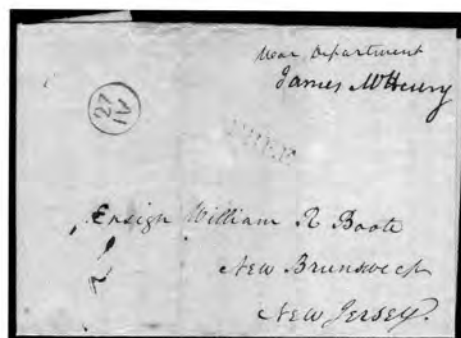 War Department
James McHenry
27
IV
FREE
Ensign William R Boote
New Brunswick
New Jersey.